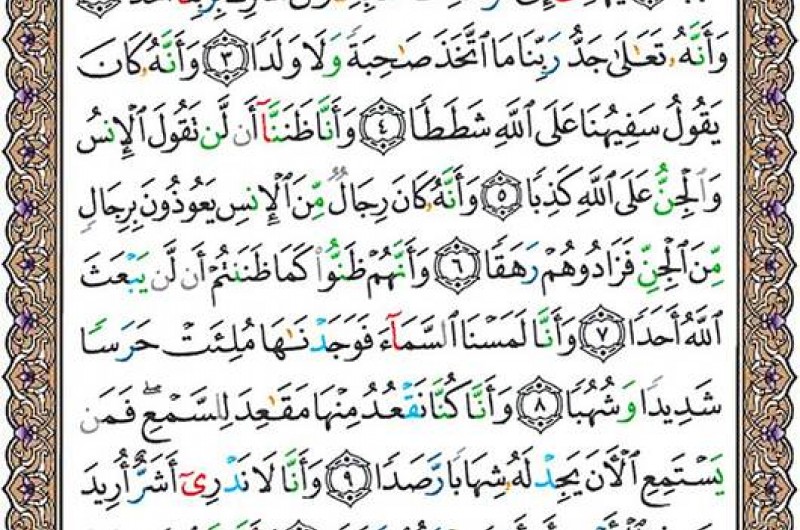 وَأَنَّهُۥ تَعَٰلَىٰ جَدُّ رَبِّنَا مَا ٱتَّخَذَ صَٰحِبَةً وَلَا وَلَدًا ٣ وَأَنَّهُۥ كَانَ
يَقُولُ سَفِيهُنَا عَلَى ٱللَّهِ شَطَطًا ٤ وَأَنَّا ظَنَنَّآ أَن لَّن تَقُولَ ٱلْإِنسُ
وَٱلْجِنُّ عَلَى ٱللَّهِ كَذِبًا ٥ وَأَنَّهُۥ كَانَ رِجَالٌ مِّنَ ٱلْإِنسِ يَعُوذُونَ بِرِجَالٍ
مِّنَ ٱلْجِنِّ فَزَادُوهُمْ رَهَقًا ٦ وَأَنَّهُمْ ظَنُّوا۟ كَمَا ظَنَنتُمْ أَن لَّن يَبْعَثَ
ٱللَّهُ أَحَدًا ٧ وَأَنَّا لَمَسْنَا ٱلسَّمَآءَ فَوَجَدْنَٰهَا مُلِئَتْ حَرَسًا
شَدِيدًا وَشُهُبًا ٨ وَأَنَّا كُنَّا نَقْعُدُ مِنْهَا مَقَٰعِدَ لِلسَّمْعِ ۖ فَمَن
يَسْتَمِعِ ٱلْآنَ يَجِدْ لَهُۥ شِهَابًا رَّصَدًا ٩ وَأَنَّا لَا نَدْرِىٓ أَشَرٌّ أُرِيدَ